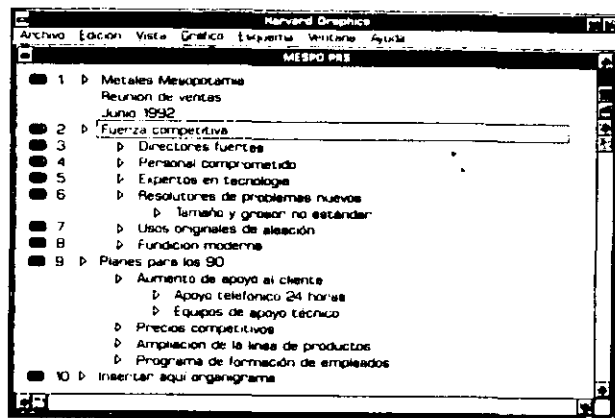 Harvard Graphics
Archivo Edición Vista Gráfico Esquema Ventana Ayuda
MESPO PRS
1 Metales Mesopotamia
Reunión de ventas
Junio 1992
2 Fuerza competitiva
3 Directores fuertes
4 Personal comprometido
5 Expertos en tecnología
6 Resolutores de problemas nuevos
Tamaño y grosor no estándar
7 Usos originales de aleación
8 Fundición moderna
9 Planes para los 90
Aumento de apoyo al cliente
Apoyo telefónico 24 horas
Equipos de apoyo técnico
Precios competitivos
Ampliación de la línea de productos
Programa de formación de empleados
10 Insertar aquí organigrama